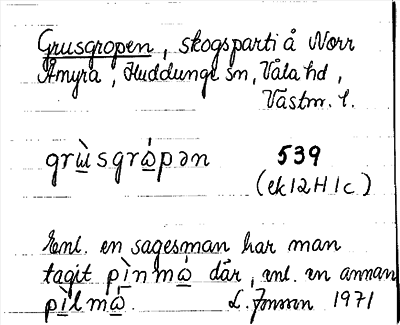 Grusgropen, skogsparti å Norr
Åmyra, Huddunge sn, Våla hd,
Västm. l.
grù̲sgrò̲pən 539
(ek 12H 1c)
Enl. en sagesman har man
tagit pì̲nmó̲ där, enl. en annan
pì̲lmó̲. L. Jonsson 1971